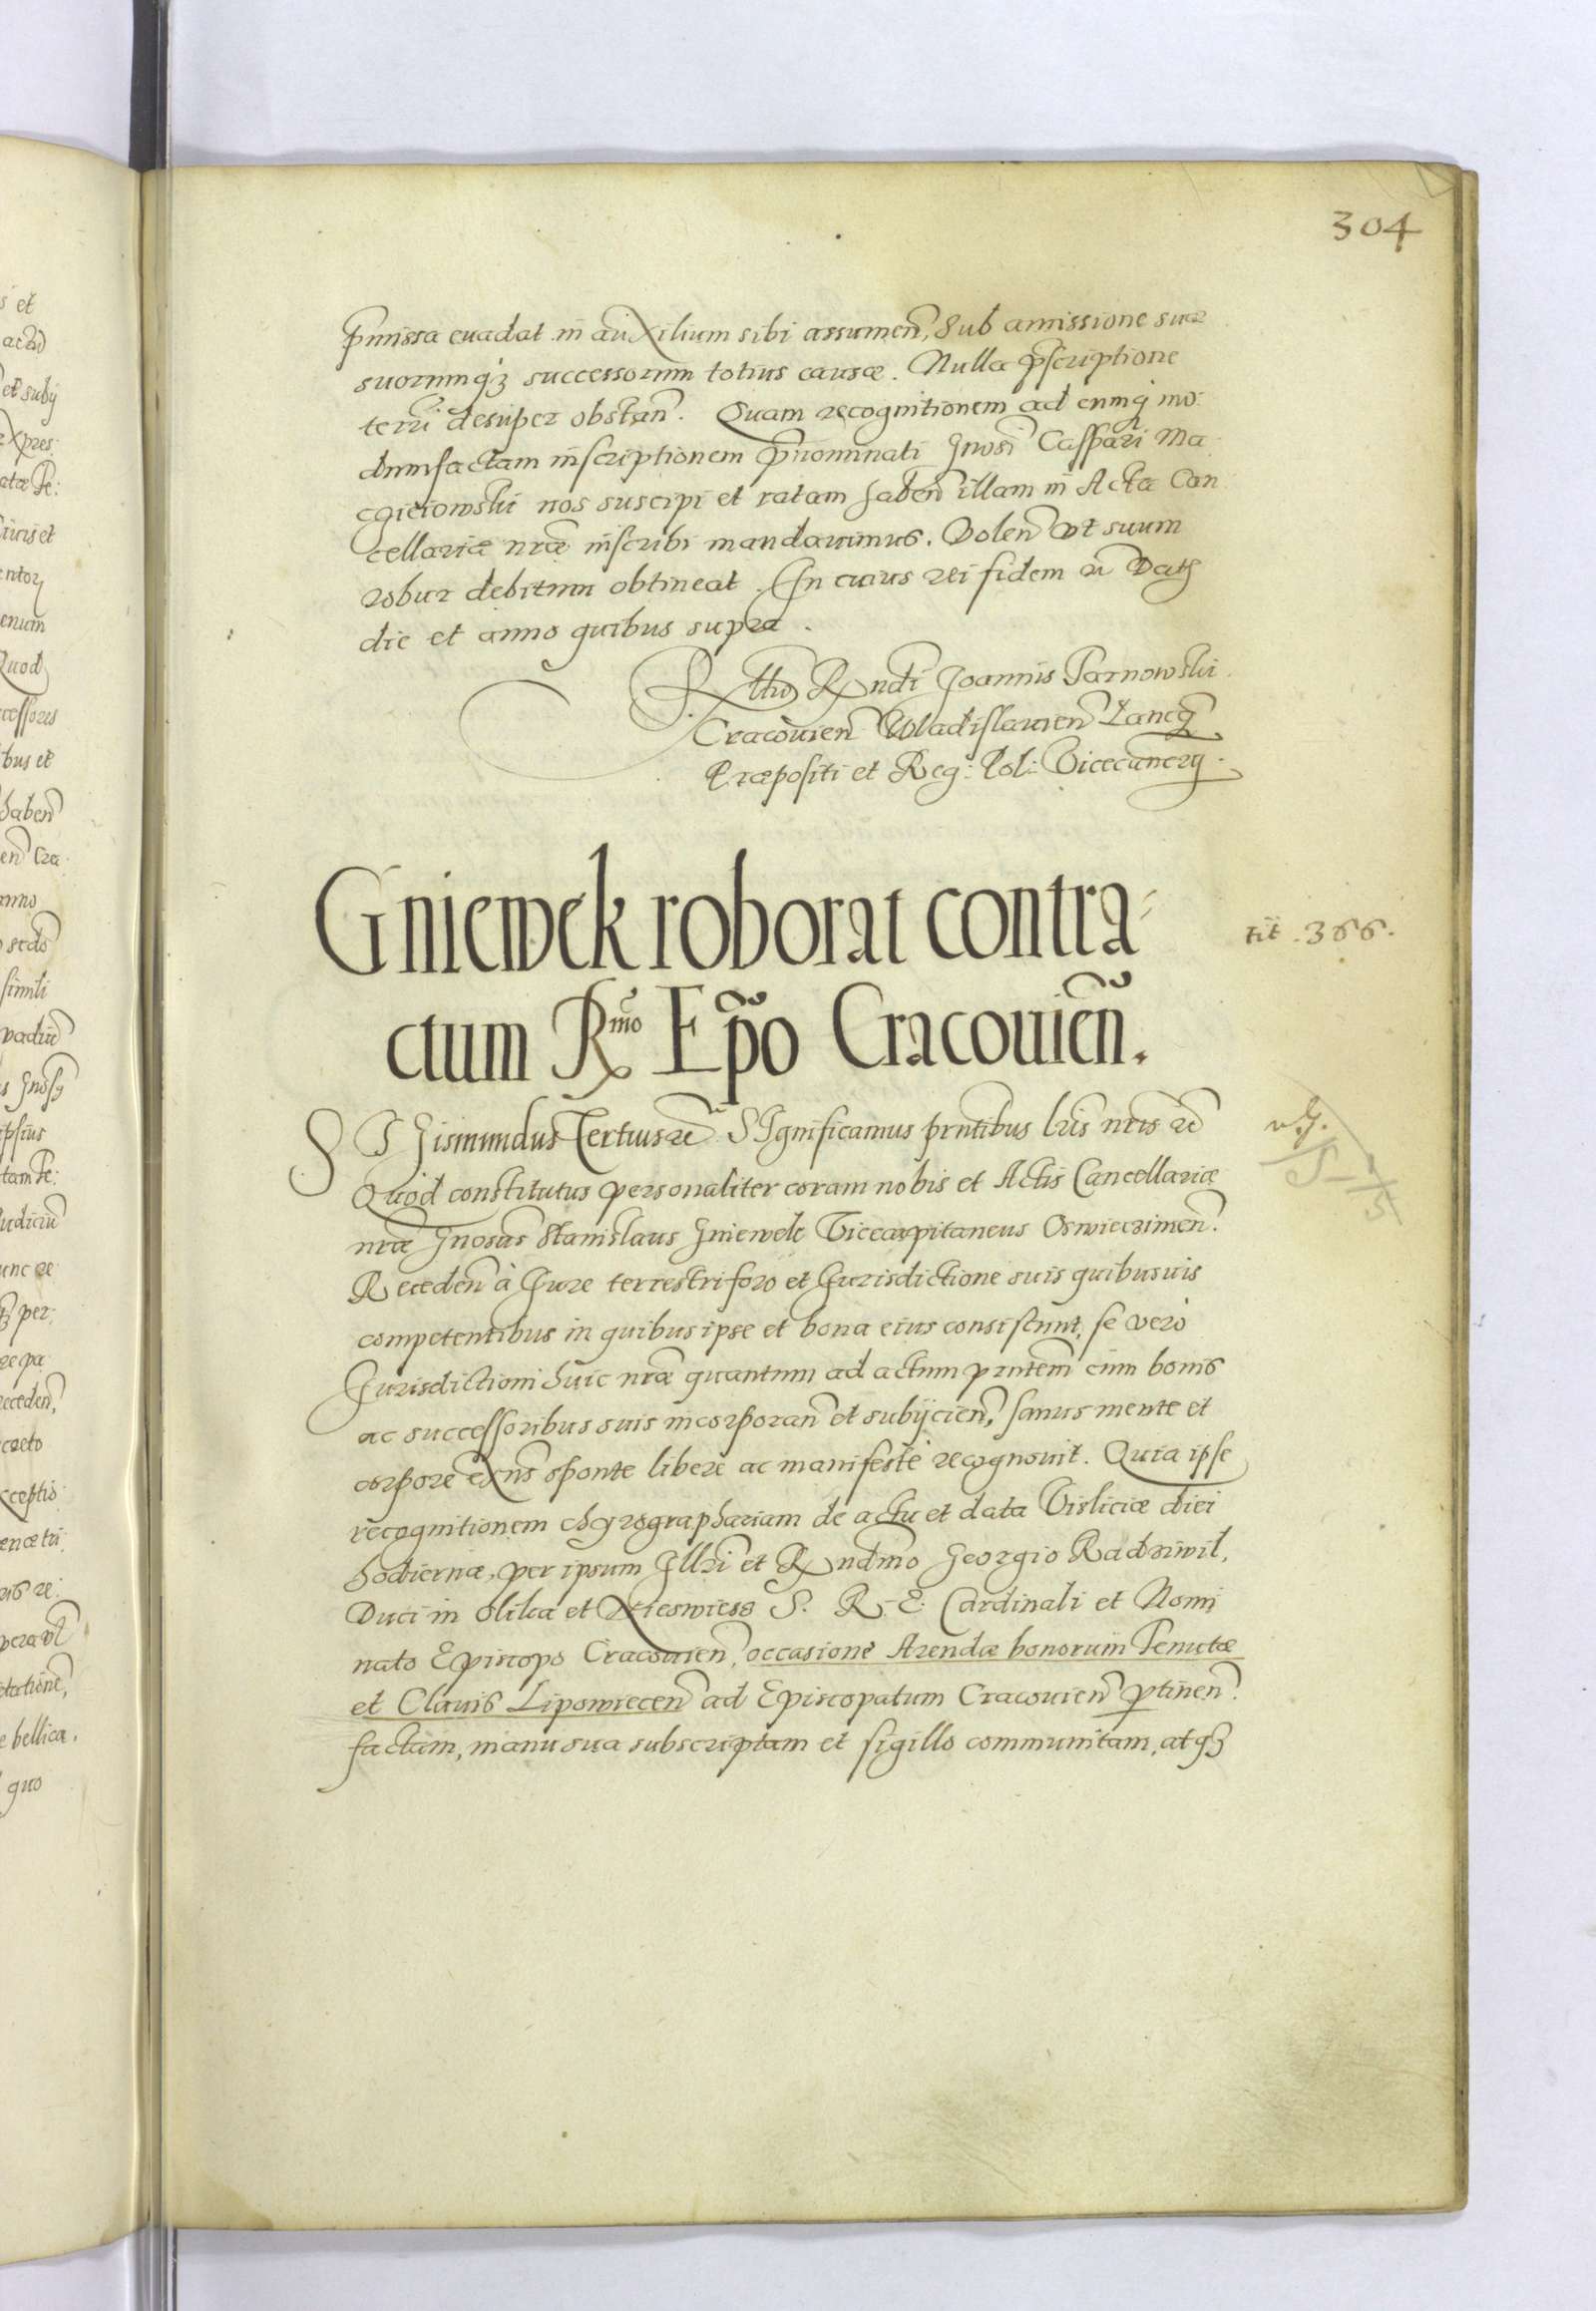 304
p̄missa euadat in auxilium sibi assumeñ, Sub amissione suæ
suorumq₃ successorum totius causæ. Nulla p̄scriptione
terrī desuper obstañ. Quam recognitionem ad eumq mo-
dum factam inscriptionem p̄nominati Gnosi Caspari Ma-
cgieiowskii nos suscipi et ratam habeñ illam in Acta Can
cellariæ nræ inscribi mandauimus. Voleñ vt suum
robur debitum obtineat. In cuius rei fidem &c Datȝ
die et anno quibus supra.
R̃ltio Rx̃ndi Joannis Tarnowskii
Cracouieñ Wladislauieñ Lancq̃
Præpositi et Reg: Pol: Vicecancrÿ.
Gniewek roborat contra-
ctum Rx̃mo Ep̃o Cracouieñ.
tit. 366.
SIgismundus Tertius &c SIgnificamus pr̃ntibus l̃ris nr̃is &c
Quod constitutus personaliter coram nobis et Actis Cancellariæ
nræ Gnosus Stanislaus Gniewek Vicecapitaneus Oswieczimeñ.
Recedeñ à Iure terrestri foro et Iurisdictione suis quibusuis
competentibus in quibus ipse et bona eius consistunt, se verò
Iurisdictioni huic nræ quantum ad actum pr̃ntem cum bonis
ac successoribus suis incorporañ et subijcieñ, sanus mente et
corpore ex̃ns sponte libere ac manifestè recognouit. Quia ipse
recognitionem chyrographariam de actu et data Visliciæ diei
hodiernæ, per ipsum Illr̃i et Rx̃ndmo Georgio Radziwil,
Duci in Olika et Nieswiess S. R. E. Cardinali et Nomi
nato Episcopo Cracouieñ, occasione Arendæ bonorum Tenutæ
et Clauis Lipowieceñ ad Episcopatum Cracouieñ ptineñ.
factam, manu sua subscriptam et sigillo communitam, atq₃